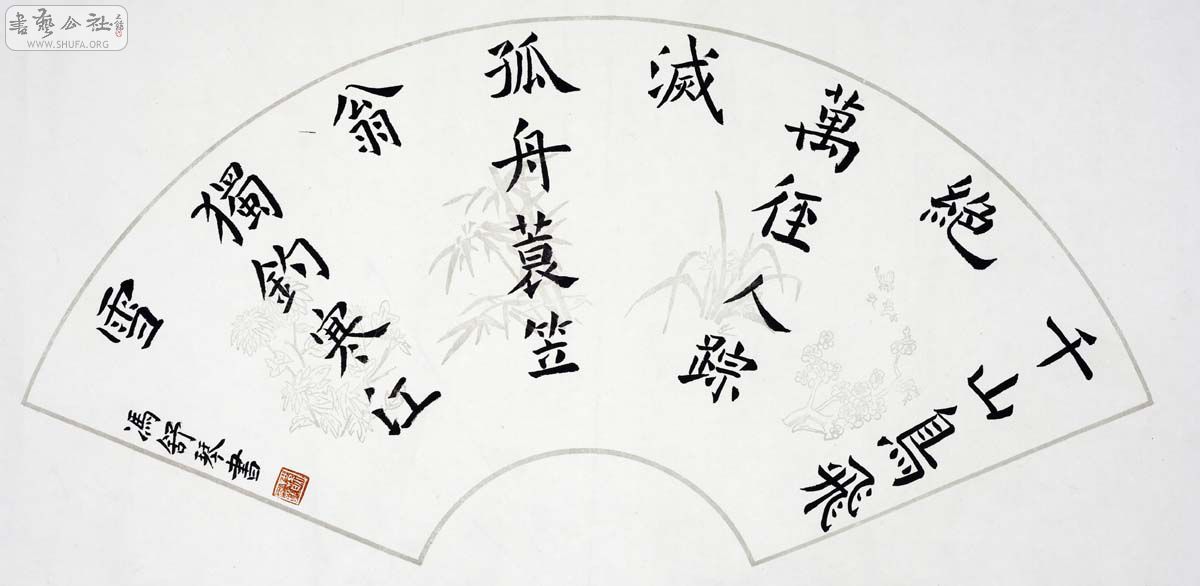 千山鳥飛
絕
萬徑人踪
滅
孤舟蓑笠
翁
獨釣寒江
雪
馮舒琴書
書藝公社
WWW.SHUFA.ORG